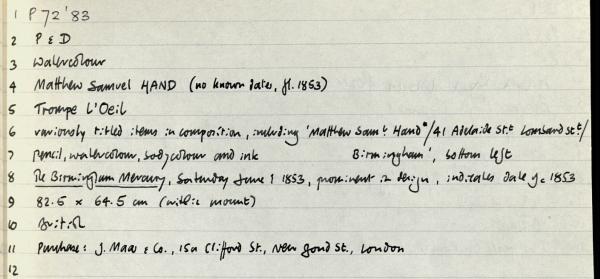 1 P 72'83
2 P & D
3 Watercolour
4 Matthew Samuel HAND (no known dates, fl. 1853)
5 Trompe L'Oeil
6 variously titled items in composition, including 'Matthew Samˡ Hand"/41 Adelaide Sᵗ Lombard Sᵗ/
7 pencil, watercolour, bodycolour and ink Birmingham', bottom left
8 The Birmingham Mercury, Saturday June 1 1853, prominent in design, indicates date of c 1853
9 82.5 x 64.5 cm (within mount)
10 British
11 Purchase: J. Maas & Co., 15a Clifford St., New Bond St., London
12